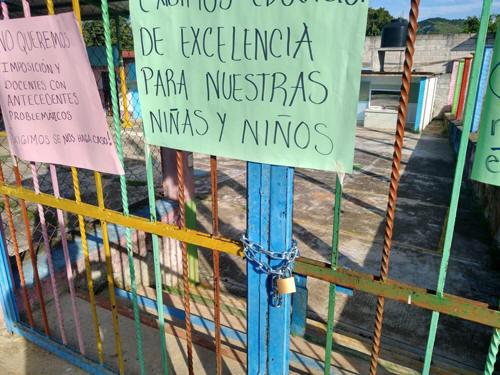 NO QUEREMOS
IMPOSICIÓN Y
DOCENTES CON
ANTECEDENTES
PROBLEMATICOS
EXIGIMOS SE NOS HAGA CASO!
EXIGIMOS EDUCACIÓN
DE EXCELENCIA
PARA NUESTRAS
NIÑAS Y NIÑOS